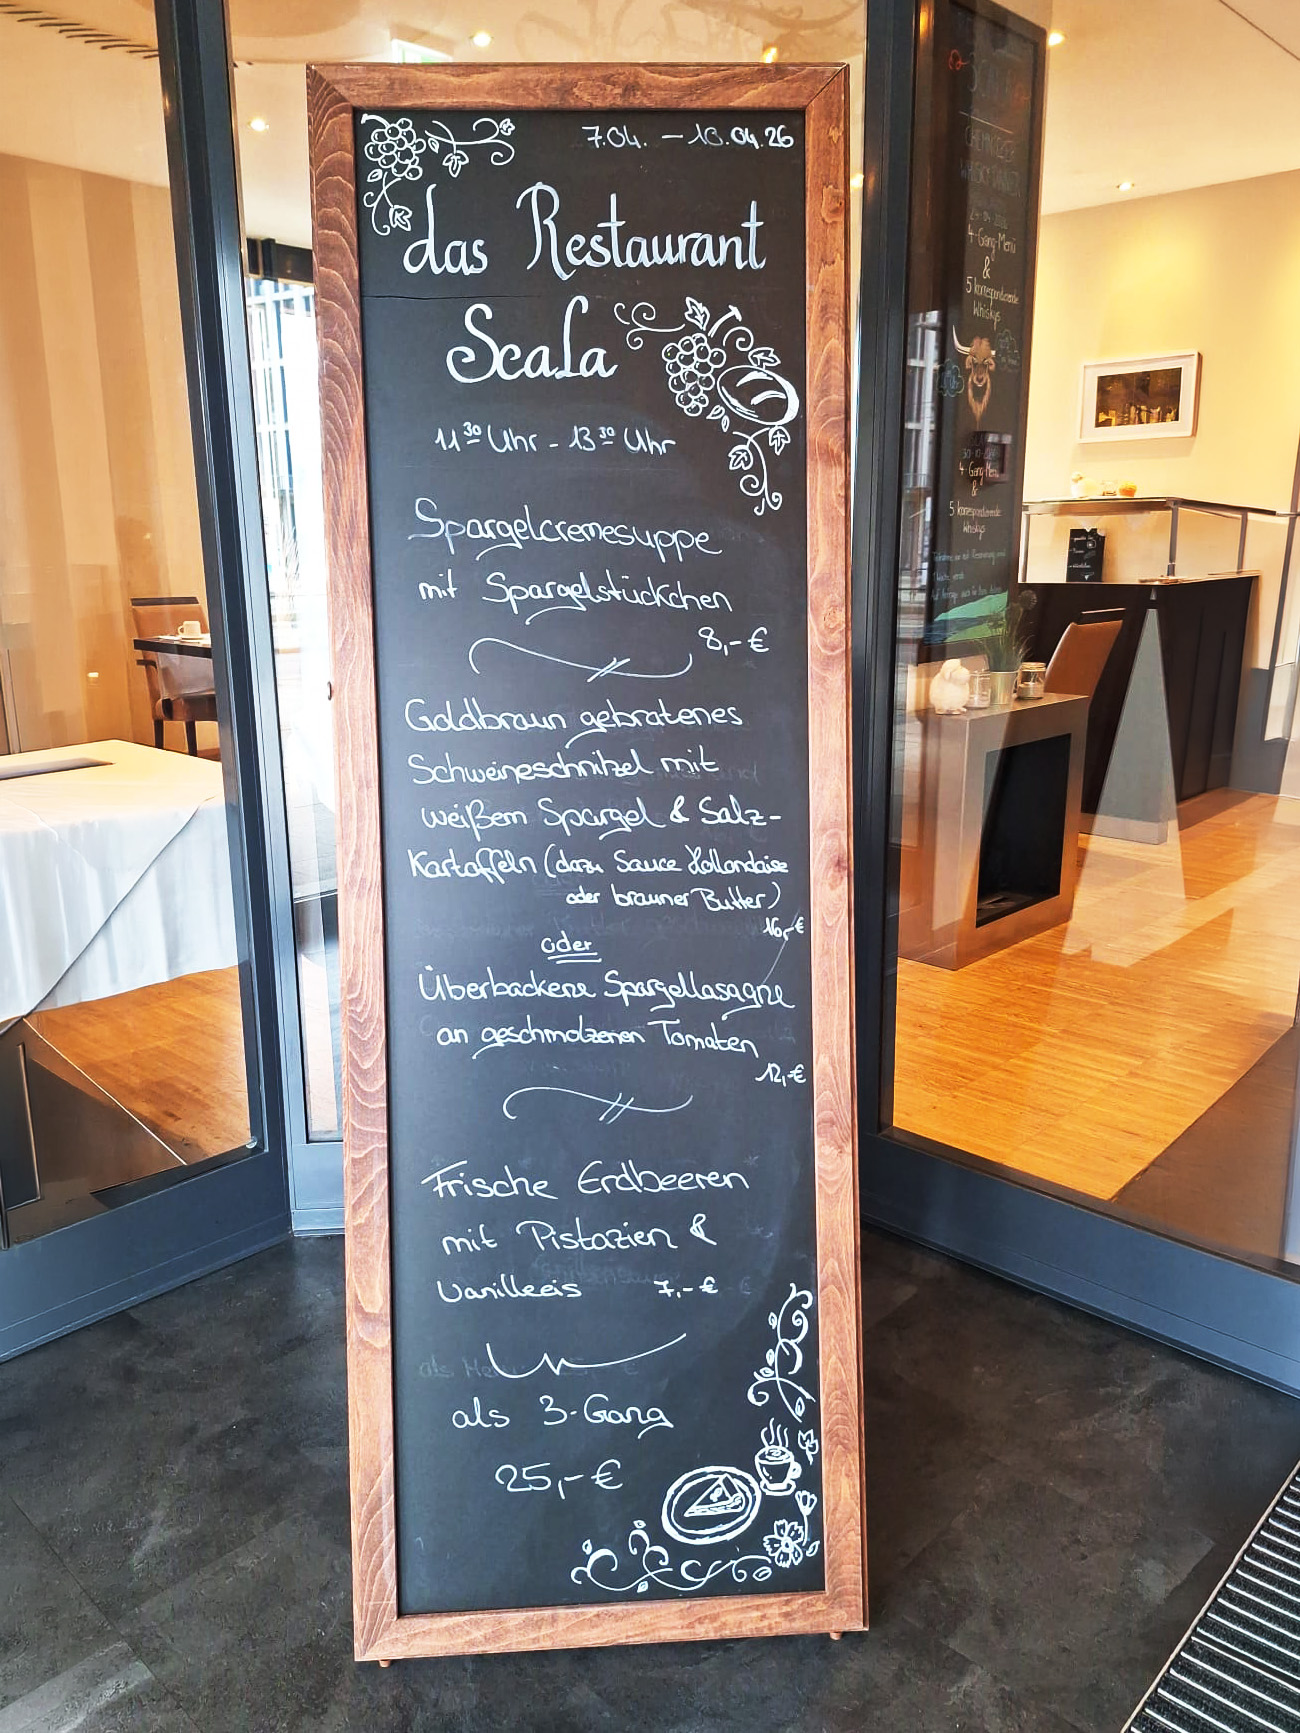 7.04. – 10.04.26
das Restaurant
Scala
11³⁰ Uhr - 13³⁰ Uhr
Spargelcremesuppe
mit Spargelstückchen
8,- €
Goldbraun gebratenes
Schweineschnitzel mit
weißem Spargel & Salz-
Kartoffeln (dazu Sauce Hollandaise
oder brauner Butter)
16,- €
oder
Überbackene Spargellasagne
an geschmolzenen Tomaten
12,- €
Frische Erdbeeren
mit Pistazien &
Vanilleeis 7,- €
als 3-Gang
25,- €
CHEMNITZER
WHISKY DINNER
24.04.2026
4-Gang-Menü
&
5 korrespondierende
Whiskys
4-Gang-Menü
&
5 korrespondierende
Whiskys